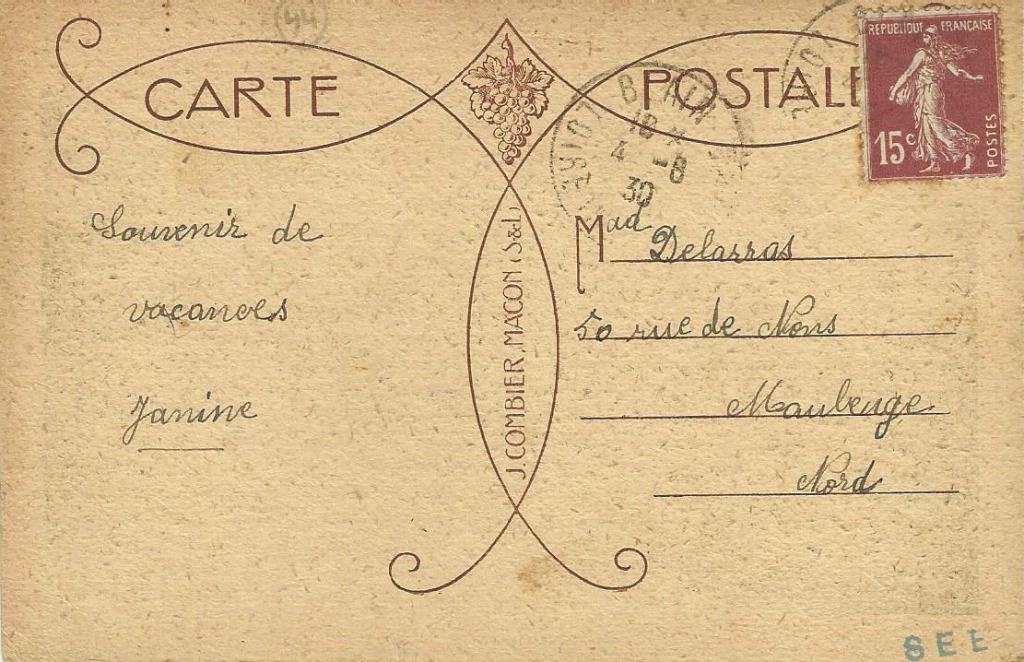 (44)
CARTE POSTALE
REPUBLIQUE FRANÇAISE
15c
POSTES
BLAIN
18
4 -8
30
LOIRE
J. COMBIER, MACON (S&L)
Souvenir de
vacances
Janine
Mad Delarras
50 rue de Mons
Maubeuge
Nord
SEE